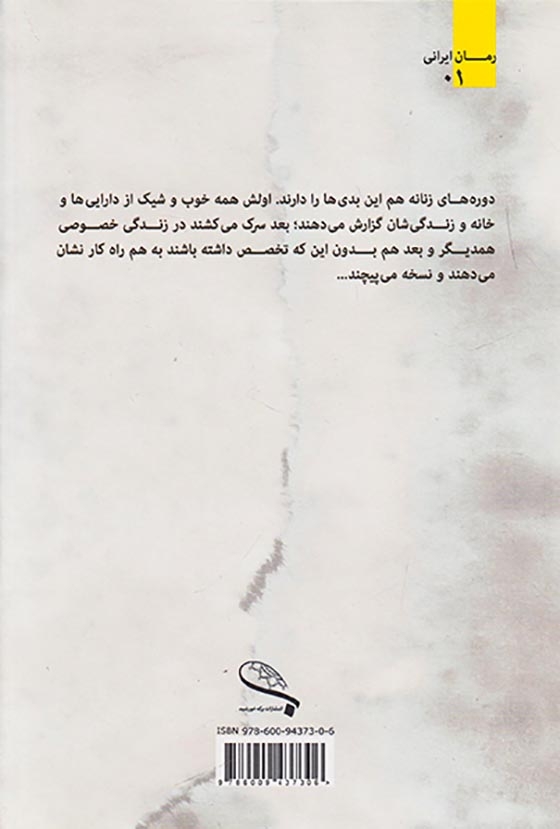 رمــان ایرانی
۰۱
دوره‌های زنانه هم این بدی‌ها را دارند. اولش همه خوب و شیک از دارایی‌ها و
خانه و زنــدگی‌شان گزارش می‌دهند؛ بعد سرک می‌کشند در زنــدگی خصوصی
همدیگر و بعد هم بــدون این که تخصص داشته باشند به هم راه کار نشان
می‌دهند و نسخه می‌پیچند...
انتشارات برکه خورشید
ISBN 978-600-94373-0-6
9786009437306